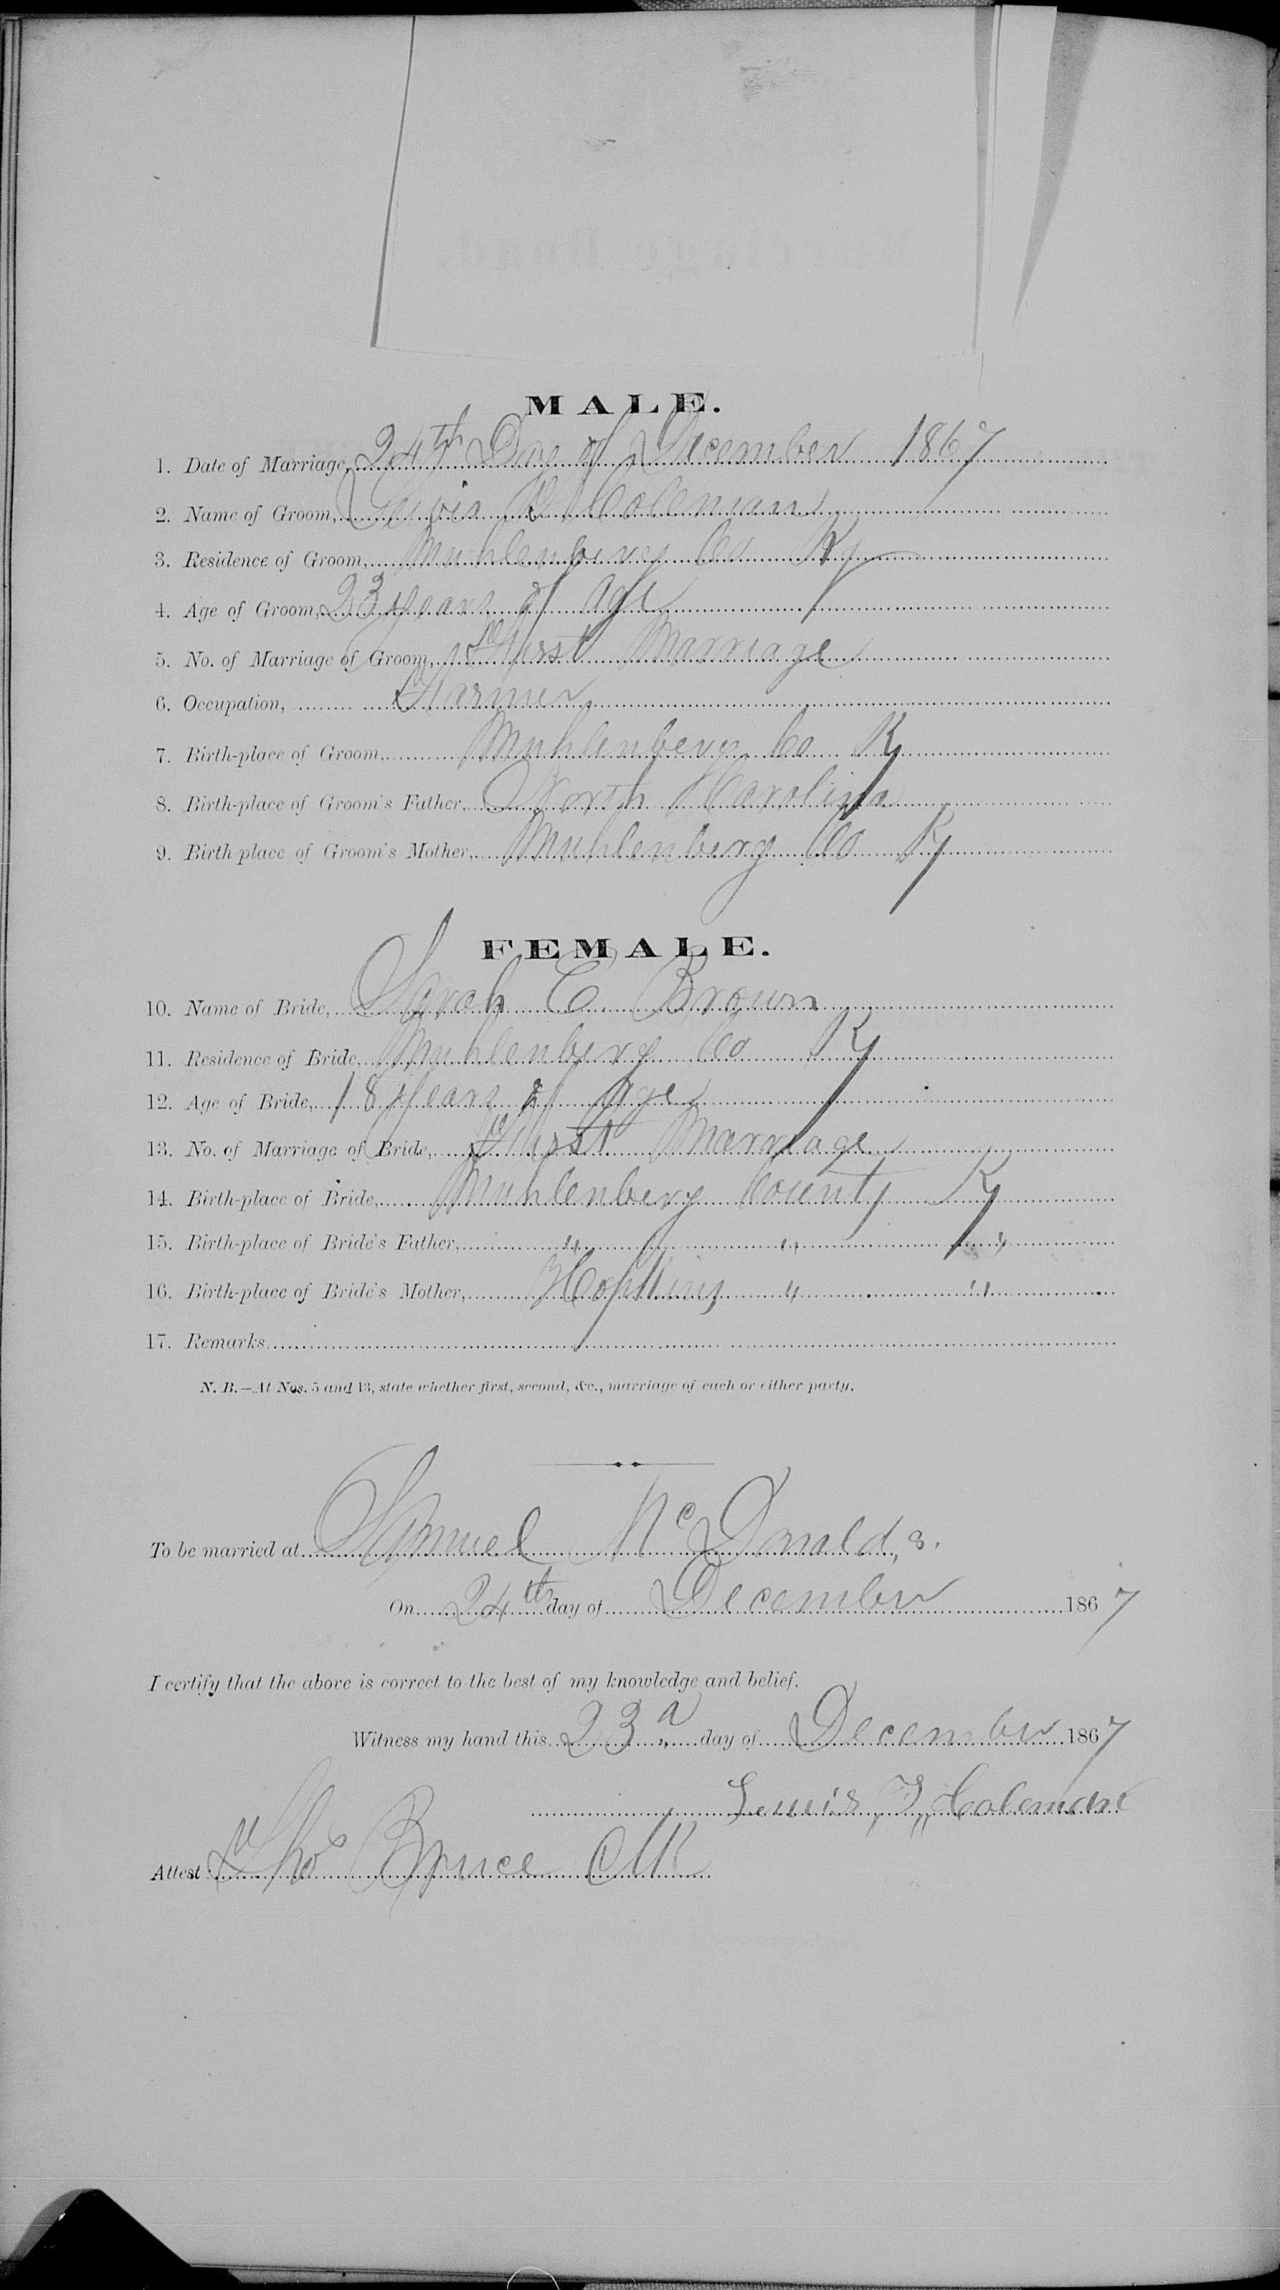 MALE.
1. Date of Marriage, 24th Day of December 1867
2. Name of Groom, Lewis Coleman
3. Residence of Groom, Muhlenberg Co Ky
4. Age of Groom, 23 years of age
5. No. of Marriage of Groom, First Marriage
6. Occupation, Farmer
7. Birth-place of Groom, Muhlenberg Co Ky
8. Birth-place of Groom's Father, North Carolina
9. Birth place of Groom's Mother, Muhlenberg Co Ky
FEMALE.
10. Name of Bride, Sarah E. Brown
11. Residence of Bride, Muhlenberg Co Ky
12. Age of Bride, 18 years of age
13. No. of Marriage of Bride, First Marriage
14. Birth-place of Bride, Muhlenberg County Ky
15. Birth-place of Bride's Father, " " "
16. Birth-place of Bride's Mother, Hopkins " "
17. Remarks
N. B.—At Nos. 5 and 13, state whether first, second, &c., marriage of each or either party.
To be married at Samuel McDonald,s.
On 24th day of December 1867
I certify that the above is correct to the best of my knowledge and belief.
Witness my hand this 23d day of December 1867
Lewis Coleman
Attest Thos Bruce Clk